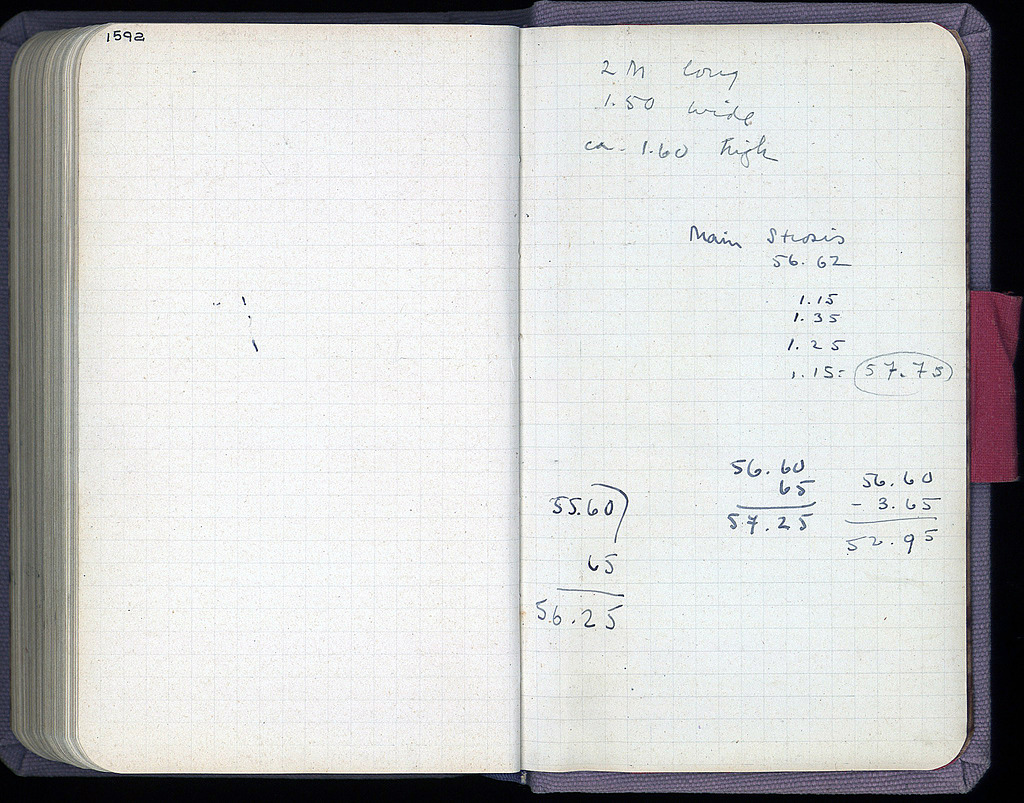 1592
2 M long
1.50 wide
ca. 1.60 high
Main Strosis
56.62
1.15
1.35
1.25
1.15 = 57.75
55.60
65
56.25
56.60
65
57.25
56.60
- 3.65
52.95